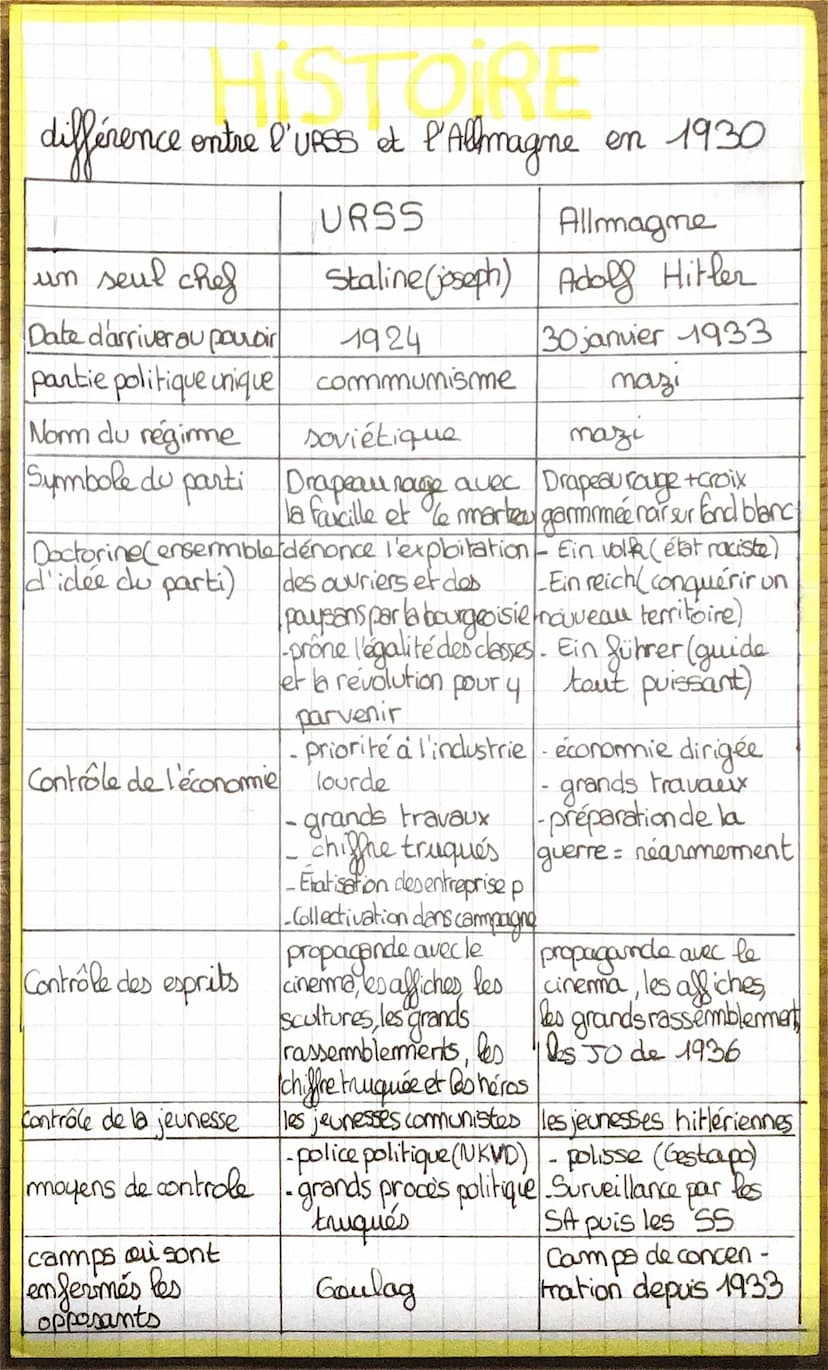 HiSTOiRE
différence entre l'URSS et l'Allmagne en 1930
URSS
Allmagne
un seul chef
Staline (joseph)
Adolf Hitler
Date d'arriver au pouvoir
1924
30 janvier 1933
partie politique unique
communisme
nazi
Nom du régime
soviétique
nazi
Symbole du parti
Drapeau rouge avec
la faucille et le marteau
Drapeau rouge + croix
gammée noir sur fond blanc
Doctorine (ensemble
d'idée du parti)
dénonce l'exploitation
des ouvriers et des
paysans par la bourgeoisie
-prône l'égalité des classes
et la révolution pour y
parvenir
- Ein volk (état raciste)
-Ein reich (conquérir un
nouveau territoire)
- Ein führer (guide
tout puissant)
Contrôle de l'économie
- priorité à l'industrie
lourde
- grands travaux
- chiffre truqués
- Étatisation des entreprise p
-Collectivation dans campagne
- économie dirigée
- grands travaux
-préparation de la
guerre = réarmement
Contrôle des esprits
propagande avec le
cinema, les affiches, les
scultures, les grands
rassemblements, les
chiffre truquée et les héros
propagande avec le
cinema, les affiches,
les grands rassemblement
les JO de 1936
Contrôle de la jeunesse
les jeunesses communistes
les jeunesses hitlériennes
moyens de controle
-police politique (NKVD)
-grands procès politique
truqués
- polisse (Gestapo)
-Surveillance par les
SA puis les SS
camps où sont
enfermés les
opposants
Goulag
Camps de concen-
tration depuis 1933